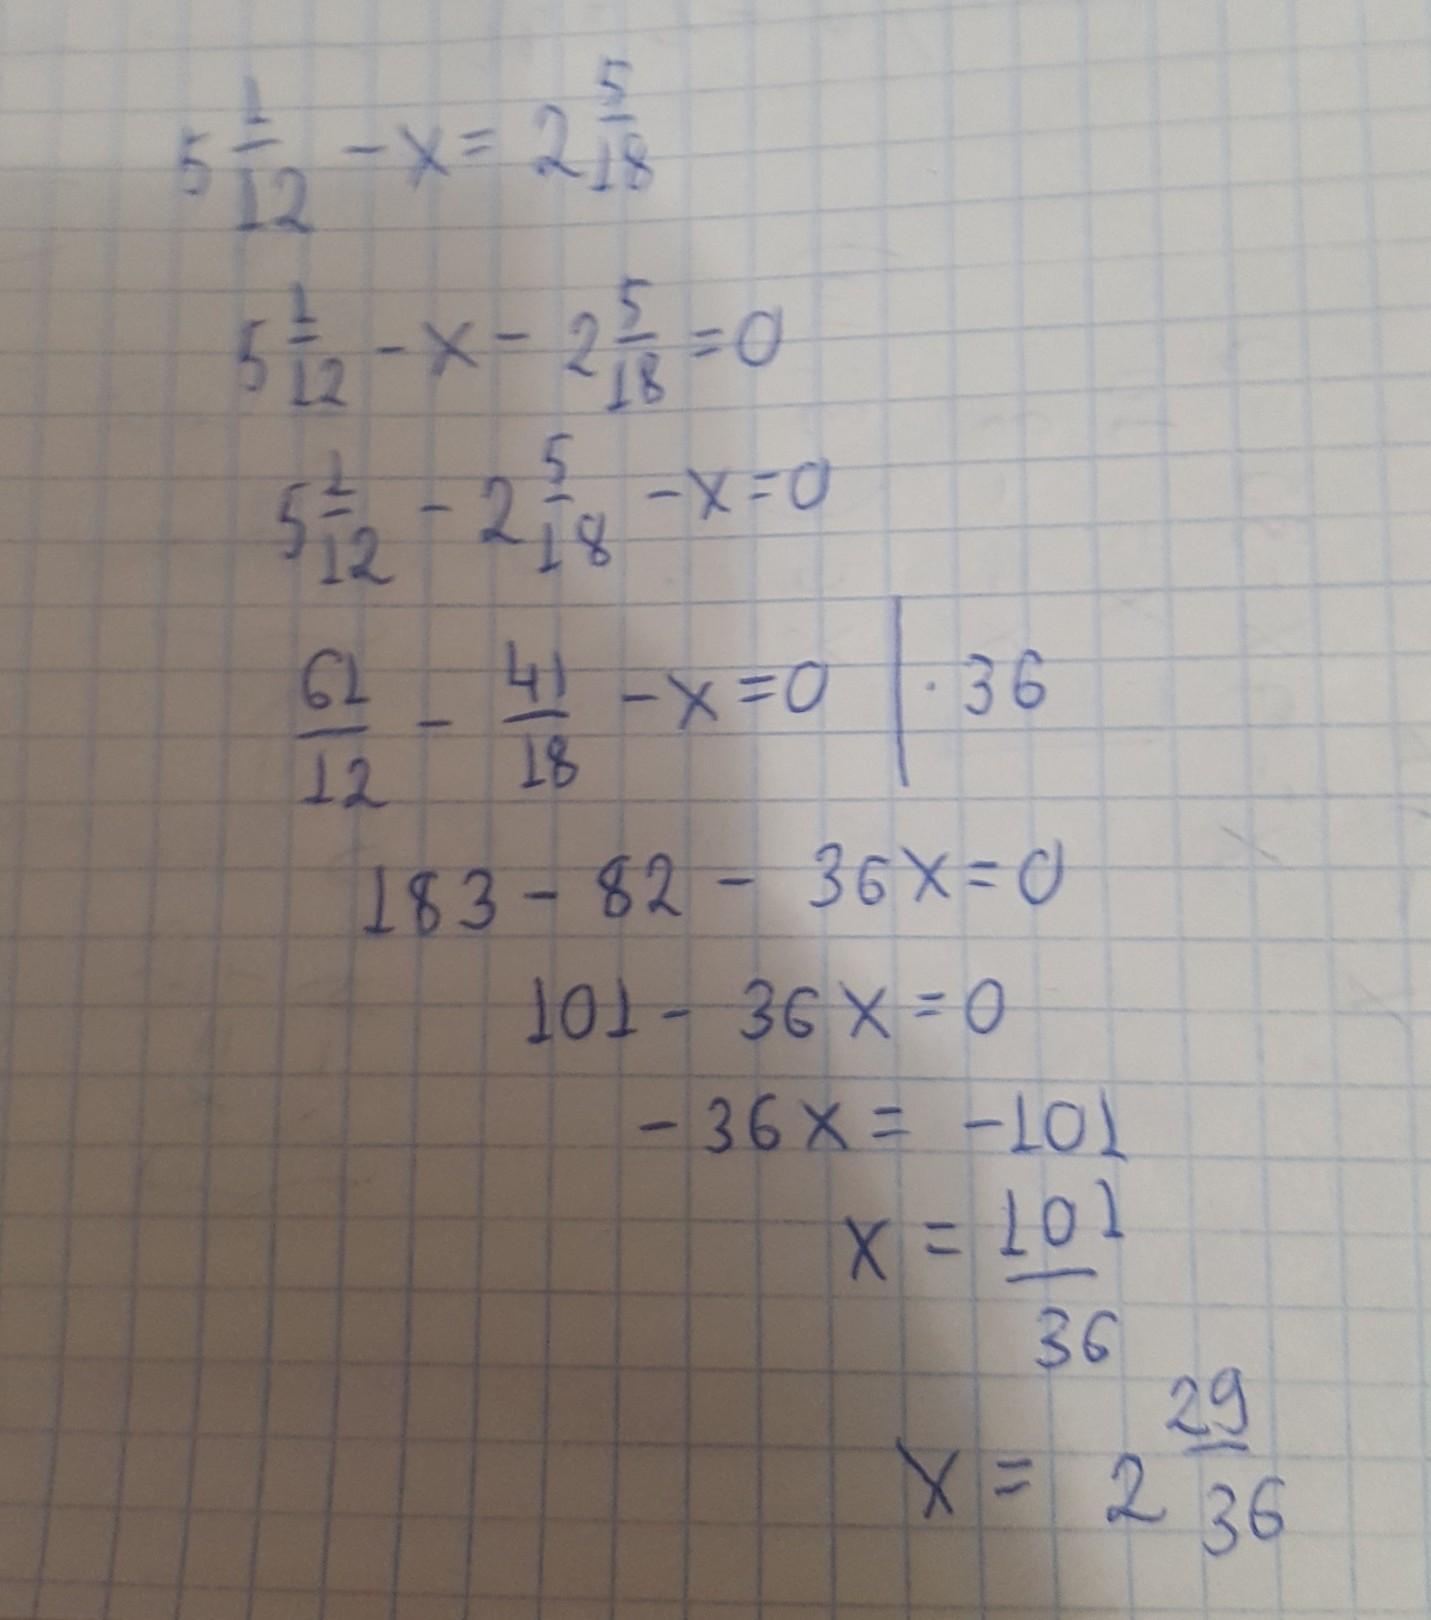 5 1/12 - x = 2 5/18
5 1/12 - x - 2 5/18 = 0
5 1/12 - 2 5/18 - x = 0
61/12 - 41/18 - x = 0 | · 36
183 - 82 - 36x = 0
101 - 36x = 0
- 36x = -101
x = 101/36
x = 2 29/36